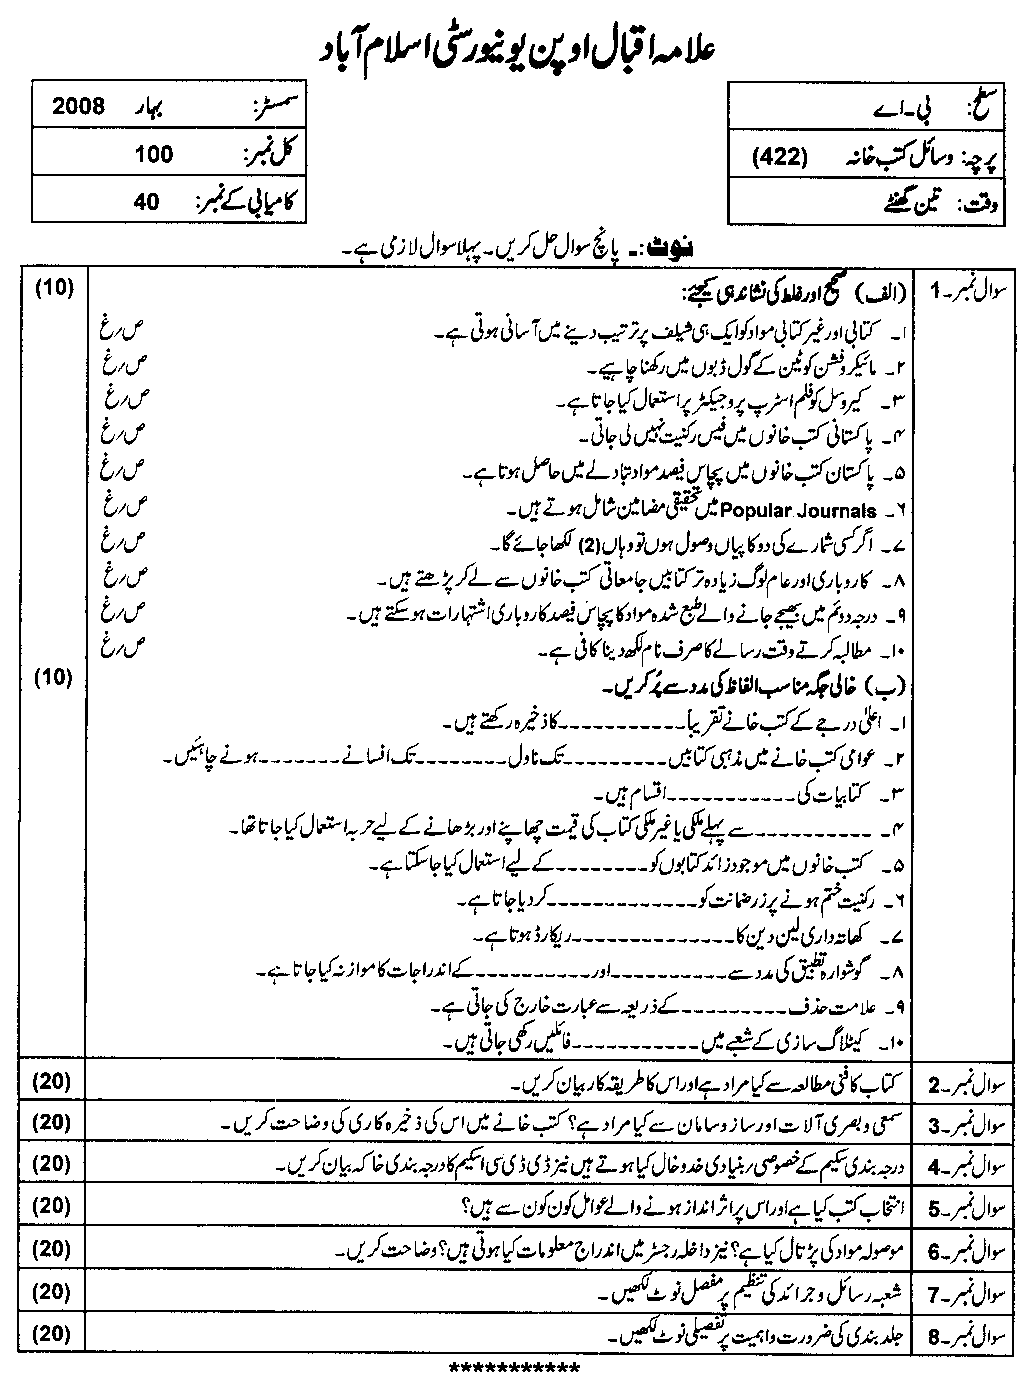 علامہ اقبال اوپن یونیورسٹی اسلام آباد
سطح: بی۔اے
پرچہ: وسائل کتب خانہ (422)
وقت: تین گھنٹے
سمسٹر: بہار 2008
کل نمبر: 100
کامیابی کے نمبر: 40
نوٹ:۔ پانچ سوال حل کریں۔ پہلا سوال لازمی ہے۔
سوال نمبر۔1 (الف) صحیح اور غلط کی نشاندہی کیجئے: (10)
۱۔ کتابی اور غیر کتابی مواد کو ایک ہی شیلف پر ترتیب دینے میں آسانی ہوتی ہے۔ ص/غ
۲۔ مائیکروفشن کو ٹین کے گول ڈبوں میں رکھنا چاہیے۔ ص/غ
۳۔ کیروسل کو فلم اسٹرپ پروجیکٹر پر استعمال کیا جاتا ہے۔ ص/غ
۴۔ پاکستانی کتب خانوں میں فیس رکنیت نہیں لی جاتی۔ ص/غ
۵۔ پاکستان کتب خانوں میں پچاس فیصد مواد تبادلے میں حاصل ہوتا ہے۔ ص/غ
۶۔ Popular Journals میں تحقیقی مضامین شامل ہوتے ہیں۔ ص/غ
۷۔ اگر کسی شمارے کی دو کاپیاں وصول ہوں تو وہاں (2) لکھا جائے گا۔ ص/غ
۸۔ کاروباری اور عام لوگ زیادہ تر کتابیں جامعاتی کتب خانوں سے لے کر پڑھتے ہیں۔ ص/غ
۹۔ درجہ دوئم میں بھیجے جانے والے طبع شدہ مواد کا پچاس فیصد کاروباری اشتہارات ہو سکتے ہیں۔ ص/غ
۱۰۔ مطالبہ کرتے وقت رسالے کا صرف نام لکھ دینا کافی ہے۔ ص/غ
(ب) خالی جگہ مناسب الفاظ کی مدد سے پُر کریں۔ (10)
۱۔ اعلیٰ درجے کے کتب خانے تقریباً ----------- کا ذخیرہ رکھتے ہیں۔
۲۔ عوامی کتب خانے میں مذہبی کتابیں ---------- تک ناول -------- تک افسانے ------- ہونے چاہئیں۔
۳۔ کتابیات کی ----------- اقسام ہیں۔
۴۔ ----------- سے پہلے ملکی یا غیر ملکی کتاب کی قیمت چھاپنے اور بڑھانے کے لیے حربہ استعمال کیا جاتا تھا۔
۵۔ کتب خانوں میں موجود زائد کتابوں کو -------- کے لیے استعمال کیا جا سکتا ہے۔
۶۔ رکنیت ختم ہونے پر زر ضمانت کو ------------ کر دیا جاتا ہے۔
۷۔ کھاتہ داری لین دین کا ------------- ریکارڈ ہوتا ہے۔
۸۔ گوشوارہ تطبیق کی مدد سے ---------- اور ---------- کے اندراجات کا موازنہ کیا جاتا ہے۔
۹۔ علامت حذف ---------- کے ذریعہ سے عبارت خارج کی جاتی ہے۔
۱۰۔ کیٹلاگ سازی کے شعبے میں ----------- فائلیں رکھی جاتی ہیں۔
سوال نمبر۔2 کتاب کا فنی مطالعہ سے کیا مراد ہے اور اس کا طریقہ کار بیان کریں۔ (20)
سوال نمبر۔3 سمعی و بصری آلات اور ساز و سامان سے کیا مراد ہے؟ کتب خانے میں اس کی ذخیرہ کاری کی وضاحت کریں۔ (20)
سوال نمبر۔4 درجہ بندی سکیم کے خصوصی ربنیادی خدوخال کیا ہوتے ہیں نیز ڈی ڈی سی اسکیم کا درجہ بندی خاکہ بیان کریں۔ (20)
سوال نمبر۔5 انتخاب کتب کیا ہے اور اس پر اثر انداز ہونے والے عوامل کون کون سے ہیں؟ (20)
سوال نمبر۔6 موصولہ مواد کی پڑتال کیا ہے؟ نیز داخلہ رجسٹر میں اندراج معلومات کیا ہوتی ہیں؟ وضاحت کریں۔ (20)
سوال نمبر۔7 شعبہ رسائل و جرائد کی تنظیم پر مفصل نوٹ لکھیں۔ (20)
سوال نمبر۔8 جلد بندی کی ضرورت و اہمیت پر تفصیلی نوٹ لکھیں۔ (20)
***********